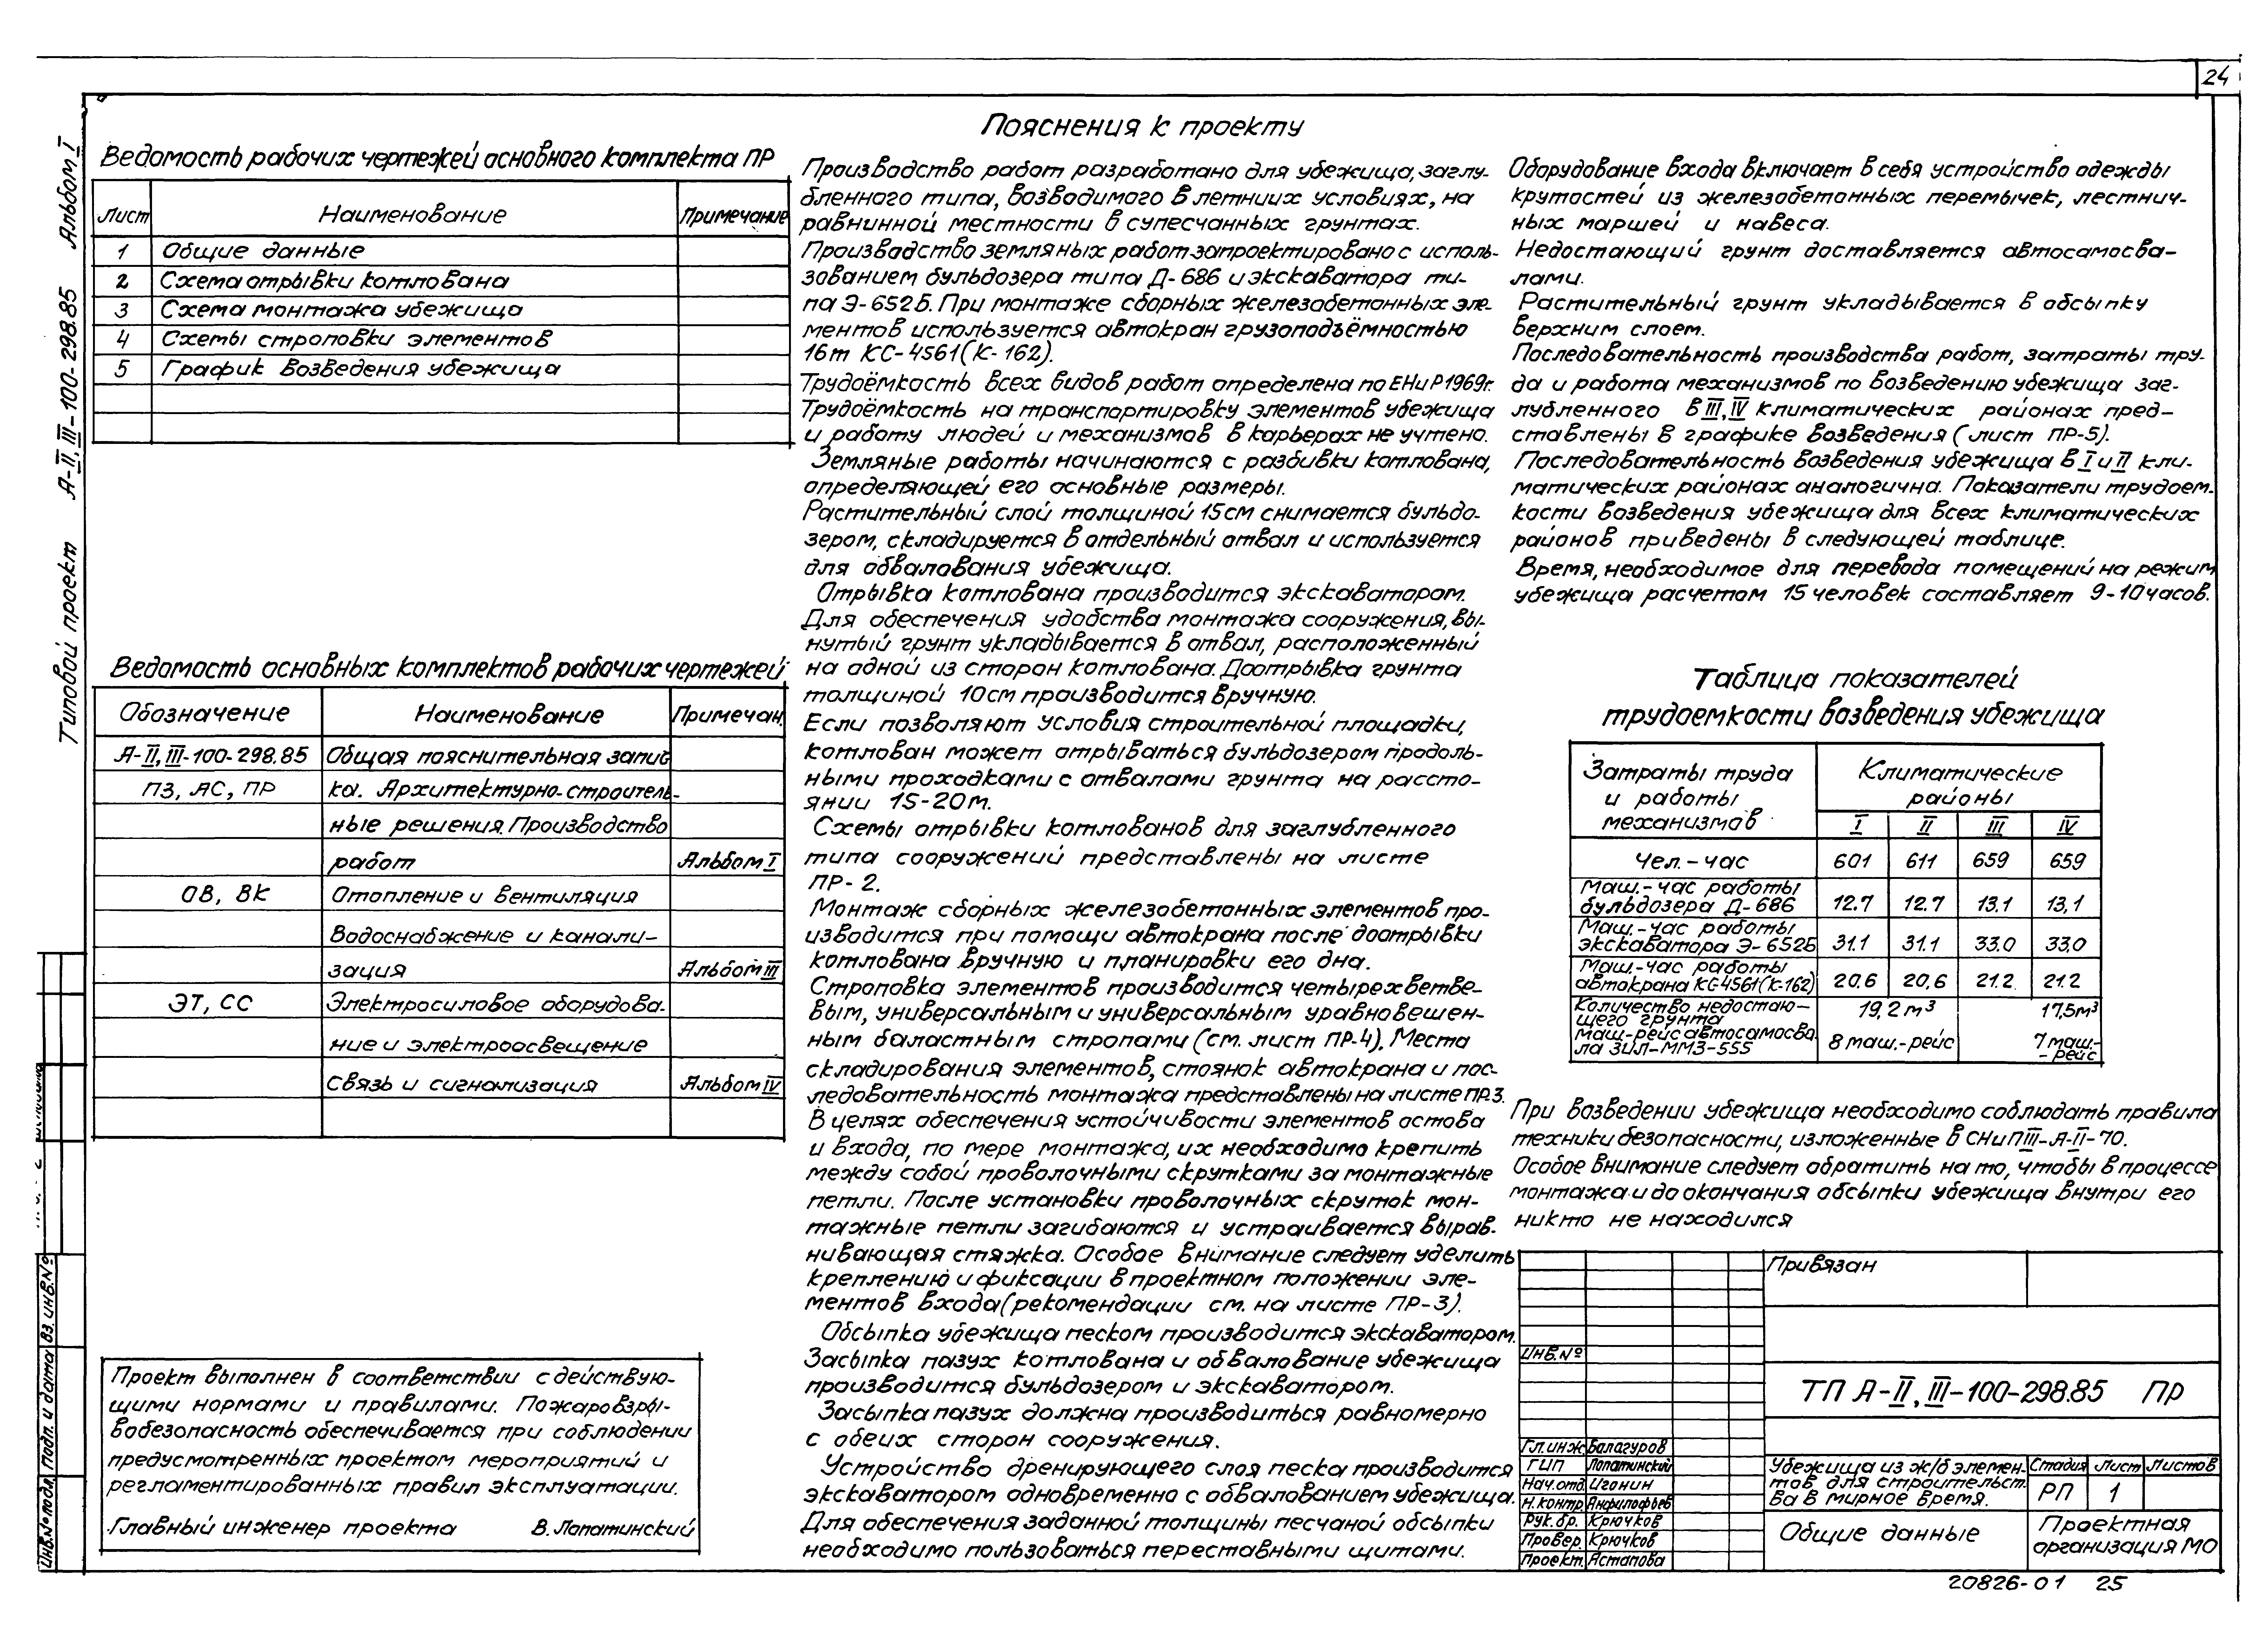 24
Типовой проект А-II,III-100-298.85 Альбом I
Ведомость рабочих чертежей основного комплекта ПР
Лист Наименование Примечание
1 Общие данные
2 Схема отрывки котлована
3 Схема монтажа убежища
4 Схемы строповки элементов
5 График возведения убежища
Ведомость основных комплектов рабочих чертежей
Обозначение Наименование Примечан.
А-II,III-100-298.85 Общая пояснительная запис
ПЗ, АС, ПР ка. Архитектурно-строитель-
ные решения. Производство
работ Альбом I
ОВ, ВК Отопление и вентиляция
Водоснабжение и канали-
зация Альбом III
ЭТ, СС Электросиловое оборудова-
ние и электроосвещение
Связь и сигнализация Альбом IV
Проект выполнен в соответствии с действую-
щими нормами и правилами. Пожаровзры-
вобезопасность обеспечивается при соблюдении
предусмотренных проектом мероприятий и
регламентированных правил эксплуатации.
Главный инженер проекта В. Лопатинский
Вз. инв.№
Подп. и дата
Инв.№ подл.
Пояснения к проекту
Производство работ разработано для убежища, заглу-
бленного типа, возводимого в летних условиях, на
равнинной местности в супесчанных грунтах.
Производство земляных работ запроектировано с исполь-
зованием бульдозера типа Д-686 и экскаватора ти-
па Э-652Б. При монтаже сборных железобетонных эле-
ментов используется автокран грузоподъёмностью
16т КС-4561(К-162).
Трудоёмкость всех видов работ определена по ЕНиР 1969г.
Трудоёмкость на транспортировку элементов убежища
и работу людей и механизмов в карьерах не учтено.
Земляные работы начинаются с разбивки котлована,
определяющей его основные размеры.
Растительный слой толщиной 15см снимается бульдо-
зером, складируется в отдельный отвал и используется
для обвалования убежища.
Отрывка котлована производится экскаватором.
Для обеспечения удобства монтажа сооружения, вы-
нутый грунт укладывается в отвал, расположенный
на одной из сторон котлована. Доотрывка грунта
толщиной 10см производится вручную.
Если позволяют условия строительной площадки,
котлован может отрываться бульдозером продоль-
ными проходками с отвалами грунта на рассто-
янии 15-20м.
Схемы отрывки котлованов для заглубленного
типа сооружений представлены на листе
ПР-2.
Монтаж сборных железобетонных элементов про-
изводится при помощи автокрана после доотрывки
котлована вручную и планировки его дна.
Строповка элементов производится четырехветве-
вым, универсальным и универсальным уравновешен-
ным баластным стропами (см. лист ПР-4). Места
складирования элементов, стоянок автокрана и пос-
ледовательность монтажа представлены на листе ПР.3.
В целях обеспечения устойчивости элементов остова
и входа, по мере монтажа, их необходимо крепить
между собой проволочными скрутками за монтажные
петли. После установки проволочных скруток мон-
тажные петли загибаются и устраивается вырав-
нивающая стяжка. Особое внимание следует уделить
креплению и фиксации в проектном положении эле-
ментов входа (рекомендации см. на листе ПР-3).
Обсыпка убежища песком производится экскаватором.
Засыпка пазух котлована и обвалование убежища
производится бульдозером и экскаватором.
Засыпка пазух должна производиться равномерно
с обеих сторон сооружения.
Устройство дренирующего слоя песка производится
экскаватором одновременно с обвалованием убежища.
Для обеспечения заданной толщины песчаной обсыпки
необходимо пользоваться переставными щитами.
Оборудование входа включает в себя устройство одежды
крутостей из железобетонных перемычек, лестнич-
ных маршей и навеса.
Недостающий грунт доставляется автосамосва-
лами.
Растительный грунт укладывается в обсыпку
верхним слоем.
Последовательность производства работ, затраты тру-
да и работа механизмов по возведению убежища заг-
лубленного в III,IV климатических районах пред-
ставлены в графике возведения (лист ПР-5).
Последовательность возведения убежища в I и II кли-
матических районах аналогична. Показатели трудоем-
кости возведения убежища для всех климатических
районов приведены в следующей таблице.
Время, необходимое для перевода помещений на режим
убежища расчетом 15 человек составляет 9-10 часов.
Таблица показателей
трудоемкости возведения убежища
Затраты труда
и работы
механизмов
Климатические
районы
I II III IV
Чел.-час 601 611 659 659
Маш.-час работы
бульдозера Д-686 12.7 12.7 13.1 13,1
Маш.-час работы
экскаватора Э-652Б 31.1 31.1 33.0 33.0
Маш.-час работы
автокрана КС-4561(К-162) 20.6 20,6 21.2 21.2
Количество недостаю-
щего грунта 19,2 м³ 17,5м³
маш-рейс автосамосва
ла ЗИЛ-ММЗ-555 8 маш.-рейс 7 маш.-
-рейс
При возведении убежища необходимо соблюдать правила
техники безопасности, изложенные в СНиПIII-А-II-70.
Особое внимание следует обратить на то, чтобы в процессе
монтажа и до окончания обсыпки убежища внутри его
никто не находился
Привязан
Инв.№
ТП А-II,III-100-298.85 ПР
Гл.инж. Балагуров
ГИП Лопатинский
Нач.отд. Игонин
Н.контр. Анфилофьев
Рук.бр. Крючков
Провер. Крючков
Проект. Астапова
Убежища из ж/б элемен-
тов для строительст
ва в мирное время.
Стадия Лист Листов
РП 1
Общие данные
Проектная
организация МО
20826-01 25